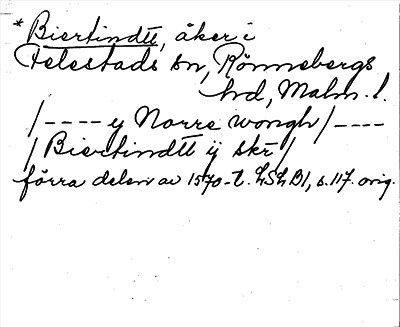 * Biertindtt, åker i
Felestads sn, Rönnebergs
hd, Malm. l.
/---- ij Norre wongh/----
/Biertindtt ij skr/
förra delen av 1570-t. LSLB1, s.117. orig.